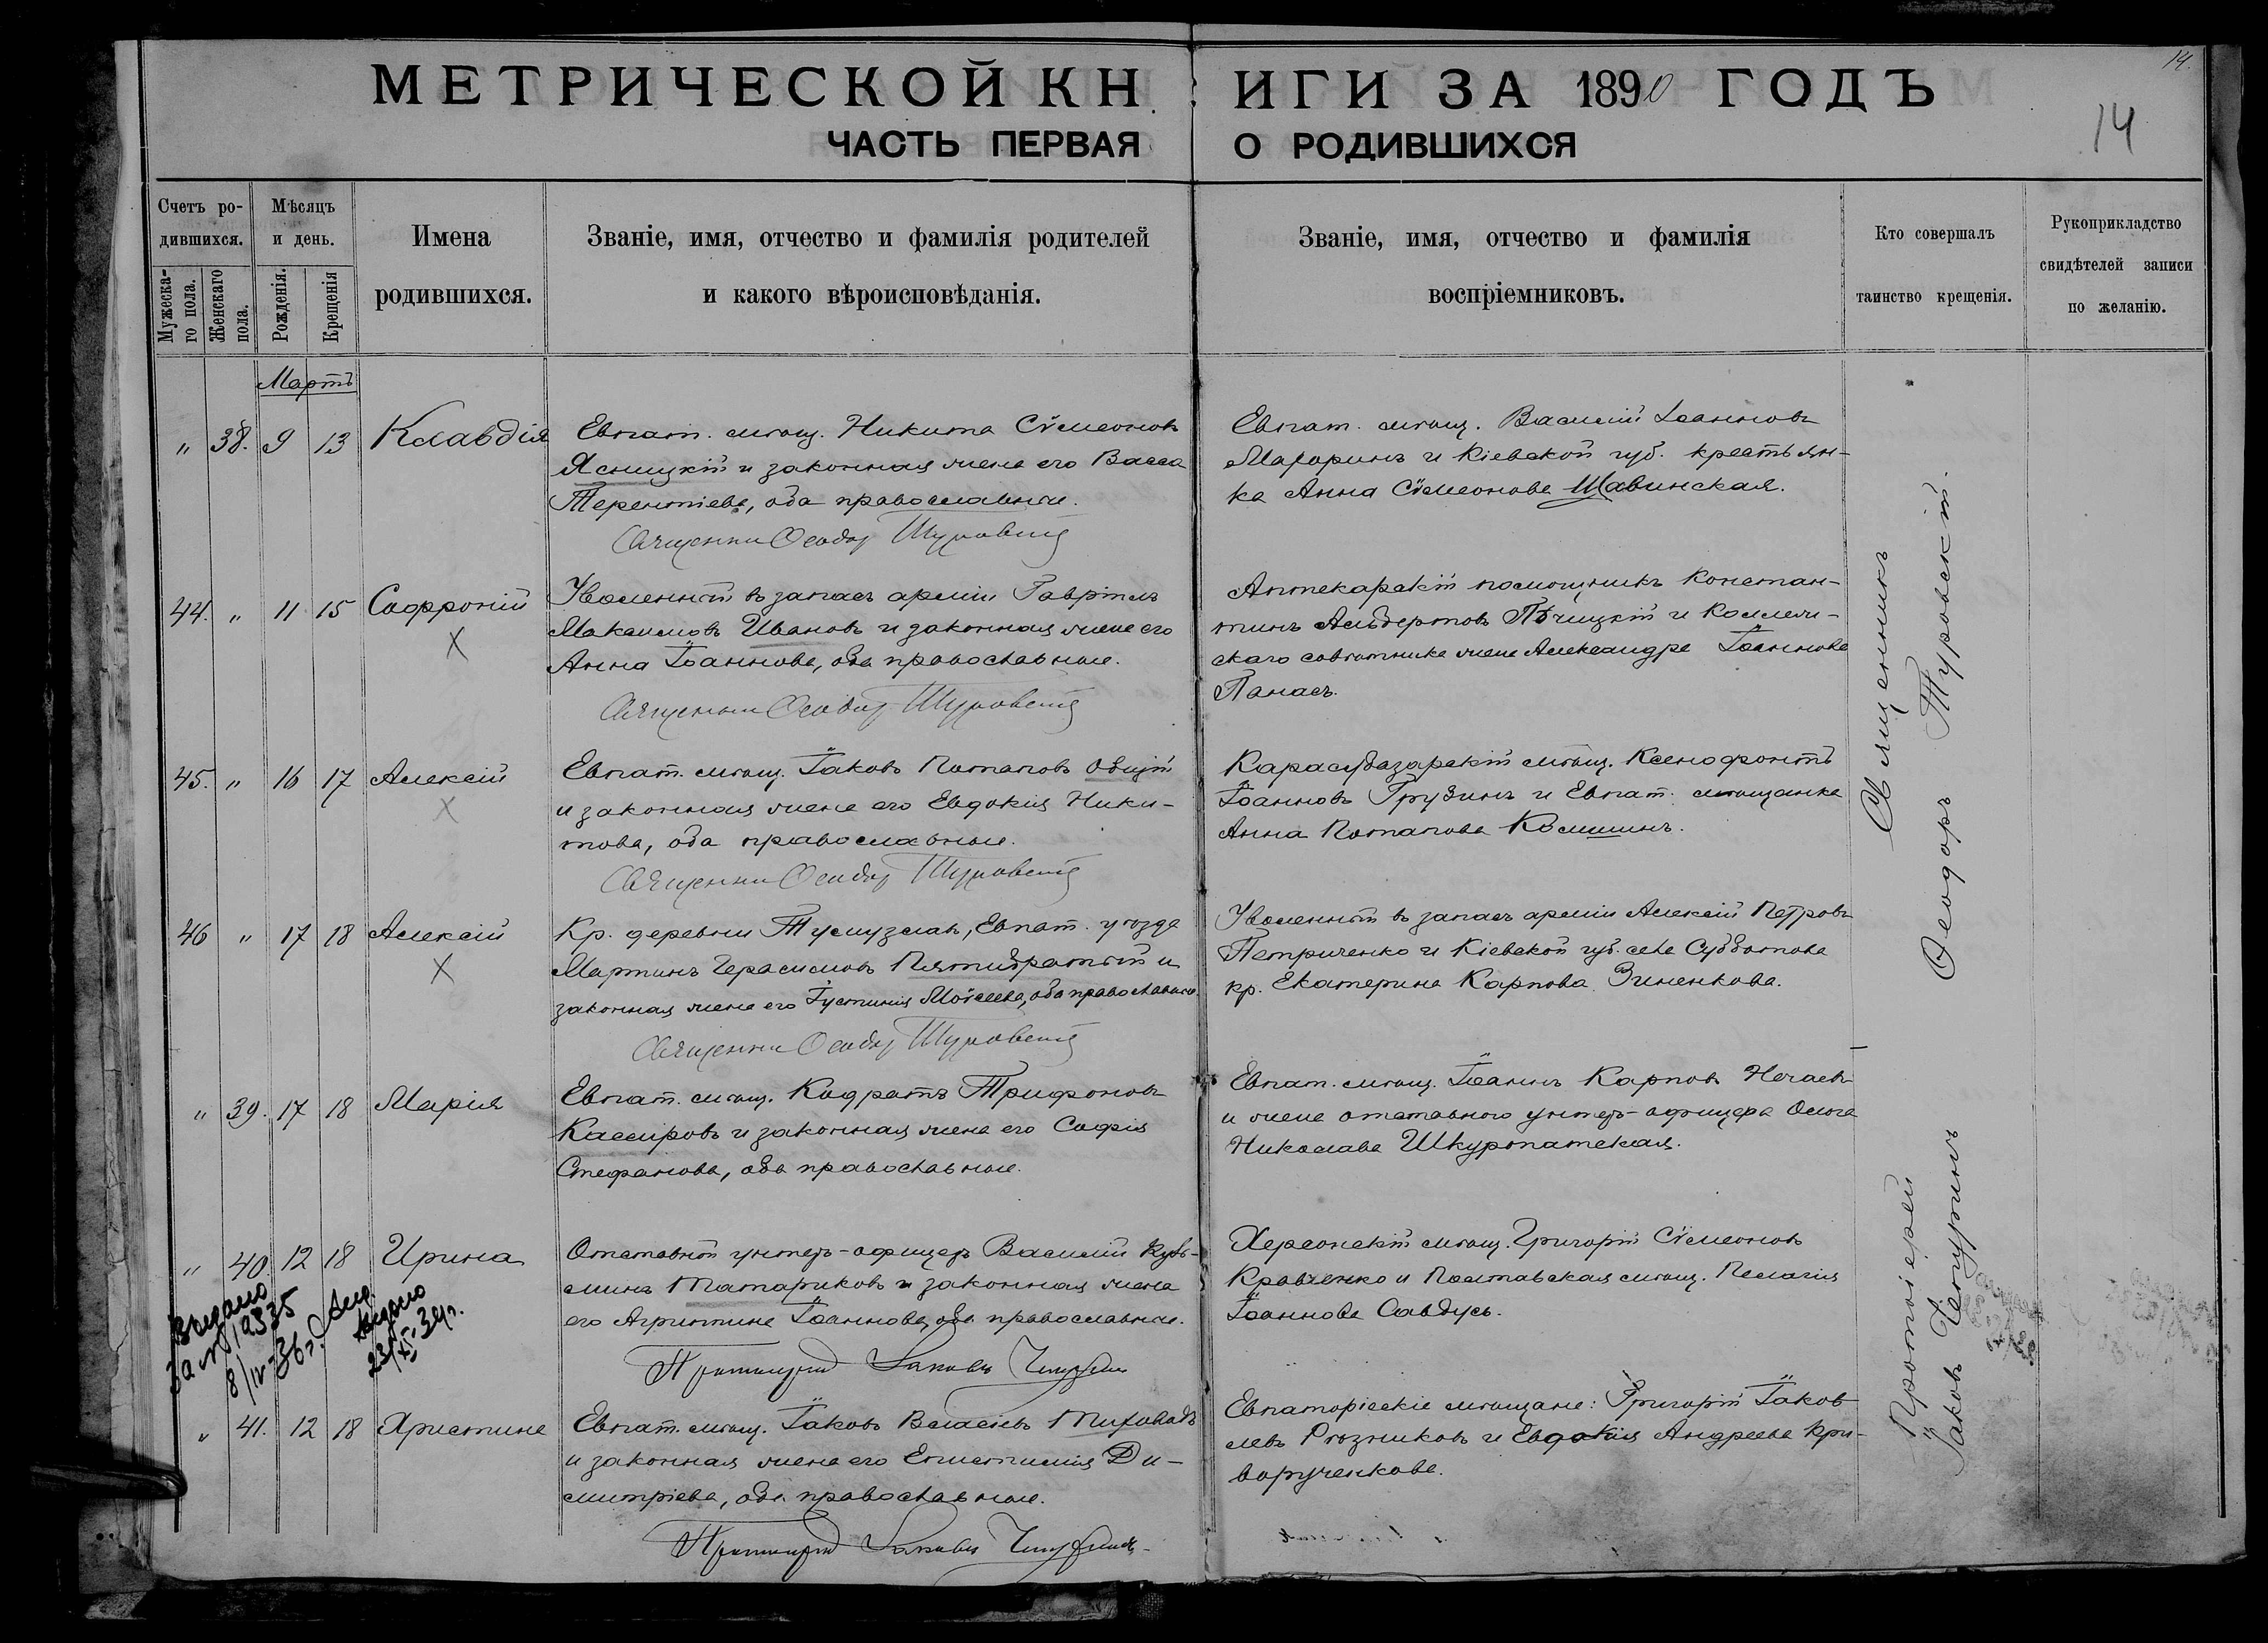 14.
МЕТРИЧЕСКОЙ КНИГИ ЗА 1890 ГОДЪ
14
ЧАСТЬ ПЕРВАЯ О РОДИВШИХСЯ
Счетъ родившихся.
Мужескаго пола.
Женскаго пола.
Мѣсяцъ и день.
Рожденія.
Крещенія
Имена
родившихся.
Званіе, имя, отчество и фамилія родителей
и какого вѣроисповѣданія.
Званіе, имя, отчество и фамилія
воспріемниковъ.
Кто совершалъ
таинство крещенія.
Рукоприкладство
свидѣтелей записи
по желанію.
Мартъ
" 38. 9 13 Клавдія
Евпат. мѣщ. Никита Сѵмеоновъ
Ясницкій и законная жена его Васса
Терентіева, оба православные.
Священник Ѳеодор Туровский
Евпат. мѣщ. Василій Іоанновъ
Махоринъ и Кіевской губ. крестьян-
ка Анна Сѵмеонова Шавинская.
44. " 11 15 Софроній
X
Уволенный въ запасъ арміи Гавріилъ
Максимовъ Ивановъ и законная жена его
Анна Іоаннова, оба православные.
Священник Ѳеодор Туровский
Аптекарскій помощникъ Констан-
тинъ Альбертовъ и Коллеж-
скаго совѣтника жена Александра Іоаннова
Панасъ.
45. " 16 17 Алексій
X
Евпат. мѣщ. Іаковъ Потаповъ Овцій
и законная жена его Евдокія Ники-
това, оба православные.
Священник Ѳеодор Туровский
Карасубазарскій мѣщ. Ксенофонтъ
Іоанновъ Грузинъ и Евпат. мѣщанка
Анна Потапова Комшинъ.
46 " 17 18 Алексій
X
Кр. деревни Тузмузлав, Евпат. уѣзда
Мартинъ Герасимовъ Пятибратый и
законная жена его Іустинія Моѵсеева, оба православные.
Священник Ѳеодор Туровский
Уволенный въ запасъ арміи Алексій Петровъ
Петриченко и Кіевской губ. села Субботова
кр. Екатерина Карпова Зиненкова.
" 39. 17 18 Марія
Евпат. мѣщ. Кодратъ Трифоновъ
Кассировъ и законная жена его Софія
Стефанова, оба православные.
Евпат. мѣщ. Іоаннъ Карповъ Нечаевъ
и жена отставного унтеръ-офицера Ольга
Николаева Шкуропатская.
" 40. 12 18 Ирина
Отставной унтеръ-офицеръ Василій Кузь-
минъ Татариковъ и законная жена
его Агриппина Іоаннова, оба православные.
Протоіерей Іаковъ Чепуринъ
Херсонскій мѣщ. Григорій Сѵмеоновъ
Кравченко и Полтавская мѣщ. Пелагія
Іоаннова Савдусь.
Выдано
8/IV-36 г.
выдано
23/XI-34г.
" 41. 12 18 Христина
Евпат. мѣщ. Іаковъ Власіевъ
и законная жена его Епистимія Ди-
митріева, оба православные.
Протоіерей Іаковъ Чепуринъ
Евпаторіскіе мѣщане: Григорій Іаков-
левъ Рѣзниковъ и Евдокія Андреева Кри-
ворученкова.
Священникъ
Ѳеодоръ Туровскій.
Протоіерей
Іаковъ Чепуринъ